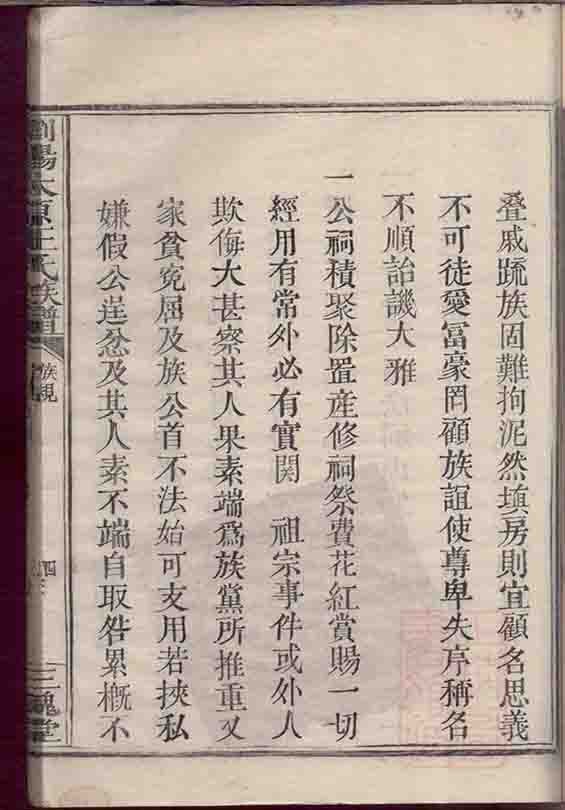 叠戚䟽族固難拘泥然填房則宜顧名思義
不可徒愛冨豪罔顧族誼使尊卑失序稱名
不順詒譏大雅
一公祠積聚除置産修祠祭費花紅賞賜一切
經用有常外必有實関　祖宗事件或外人
欺侮大甚察其人果素端爲族黨所推重又
家貧寃屈及族公首不法始可支用若挾私
嫌假公逞忿及其人素不端自取咎累槪不
瀏陽太原王氏族譜
族規
四
三槐堂